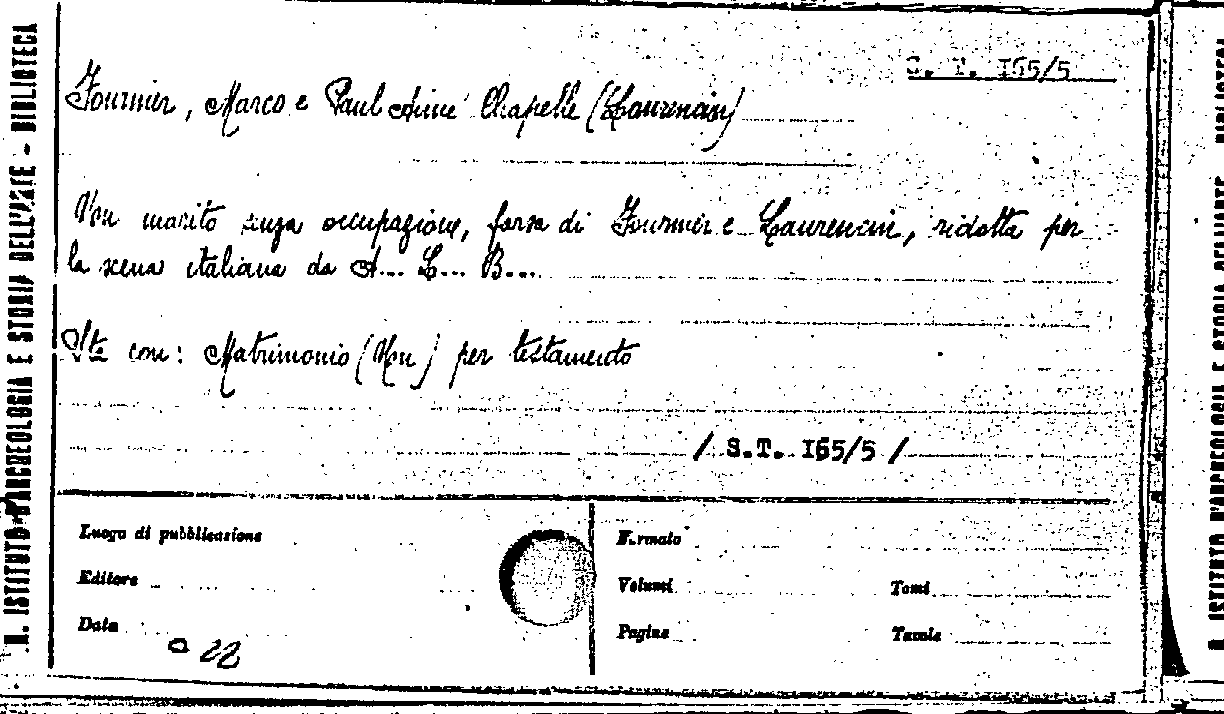 R. ISTITUTO D'ARCHEOLOGIA E STORIA DELL'ARTE - BIBLIOTECA
S. T. I65/5
Fournier, Marco e Paul Aimé Chapelle (Laurencin)
Un marito senza occupazione, farsa di Fournier e Laurencin, ridotta per
la scena italiana da A... L... B...
Sta con: Matrimonio (Un) per testamento
/ S.T. I65/5 /
Luogo di pubblicazione
Formato
Editore
Volumi
Tomi
Data
Pagine
Tavole
22